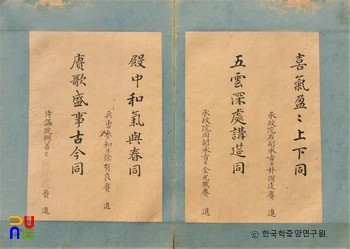 喜氣盈〻上下同
承政院右副承旨臣朴
賡進
五雲深處講筵同
承政院同副承旨臣金
賡進
殿中和氣與春同
兵曹參知臣徐有良賡進
賡歌盛事古今同
賡進
© 한국학중앙연구원